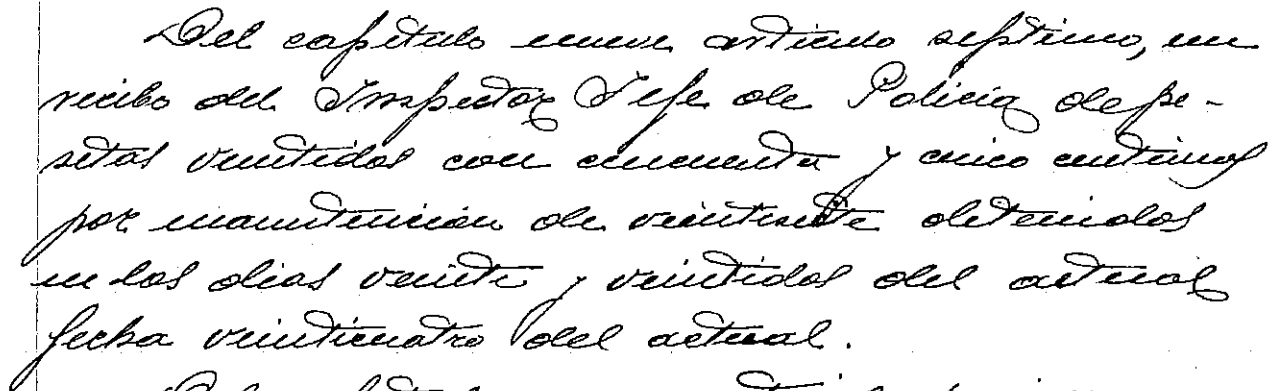 Del capítulo nueve artículo septimo, un
recibo del Inspector Jefe de Policia de pe-
setas veintidos con cincuenta y cinco centimos
por manutención de veintisiete detenidos
en los dias veinte y veintidos del actual
fecha veinticuatro del actual.